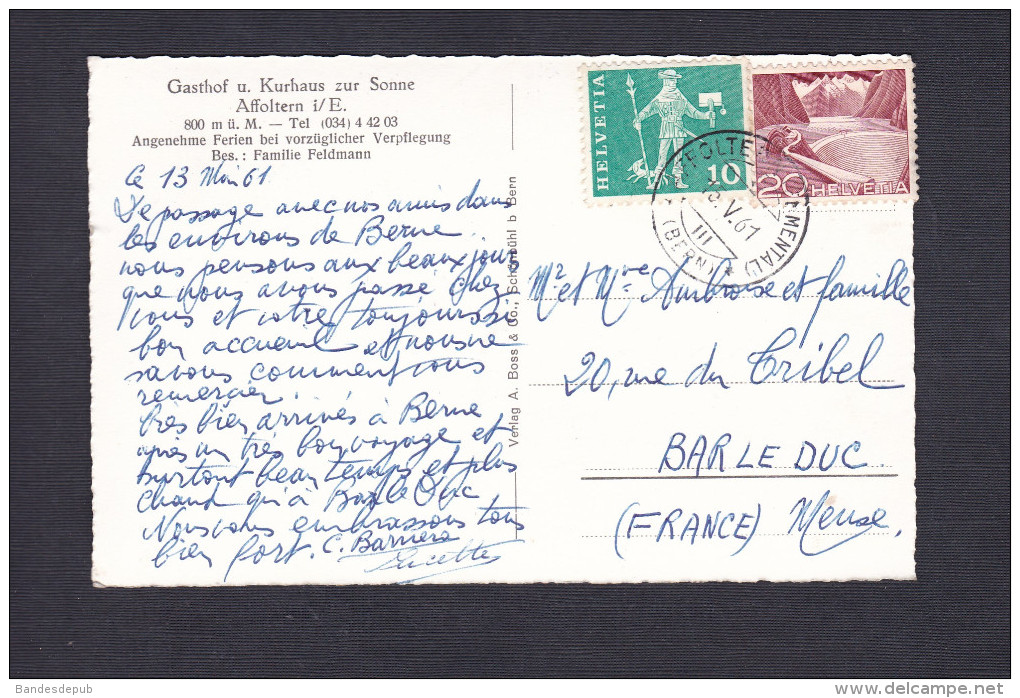 Gasthof u. Kurhaus zur Sonne
Affoltern i/E.
800 m ü. M. — Tel (034) 4 42 03
Angenehme Ferien bei vorzüglicher Verpflegung
Bes.: Familie Feldmann
Ce 13 Mai 61
De passage avec nos amis dans
les environs de Berne.
nous pensons aux beaux jours
que nous avons passé chez
vous et votre toujours si
bon accueil et nous ne
savons comment vous
remercier.
très bien arrivés à Berne,
après un très bon voyage et
surtout beau temps et plus
chaud qu'à Bar le Duc
Nous vous embrassons tous
bien fort. C. Barriera
Lucette
Verlag A. Boss & Co., Schönbühl b Bern
HELVETIA
10
20 HELVETIA
AFFOLTERN (EMMENTAL)
13.V.61
III
(BERN)
Mr et Mme Ambroise et famille
20, rue du Tribel
BAR LE DUC
(FRANCE) Meuse.
Bandesdepub
delcampe.net